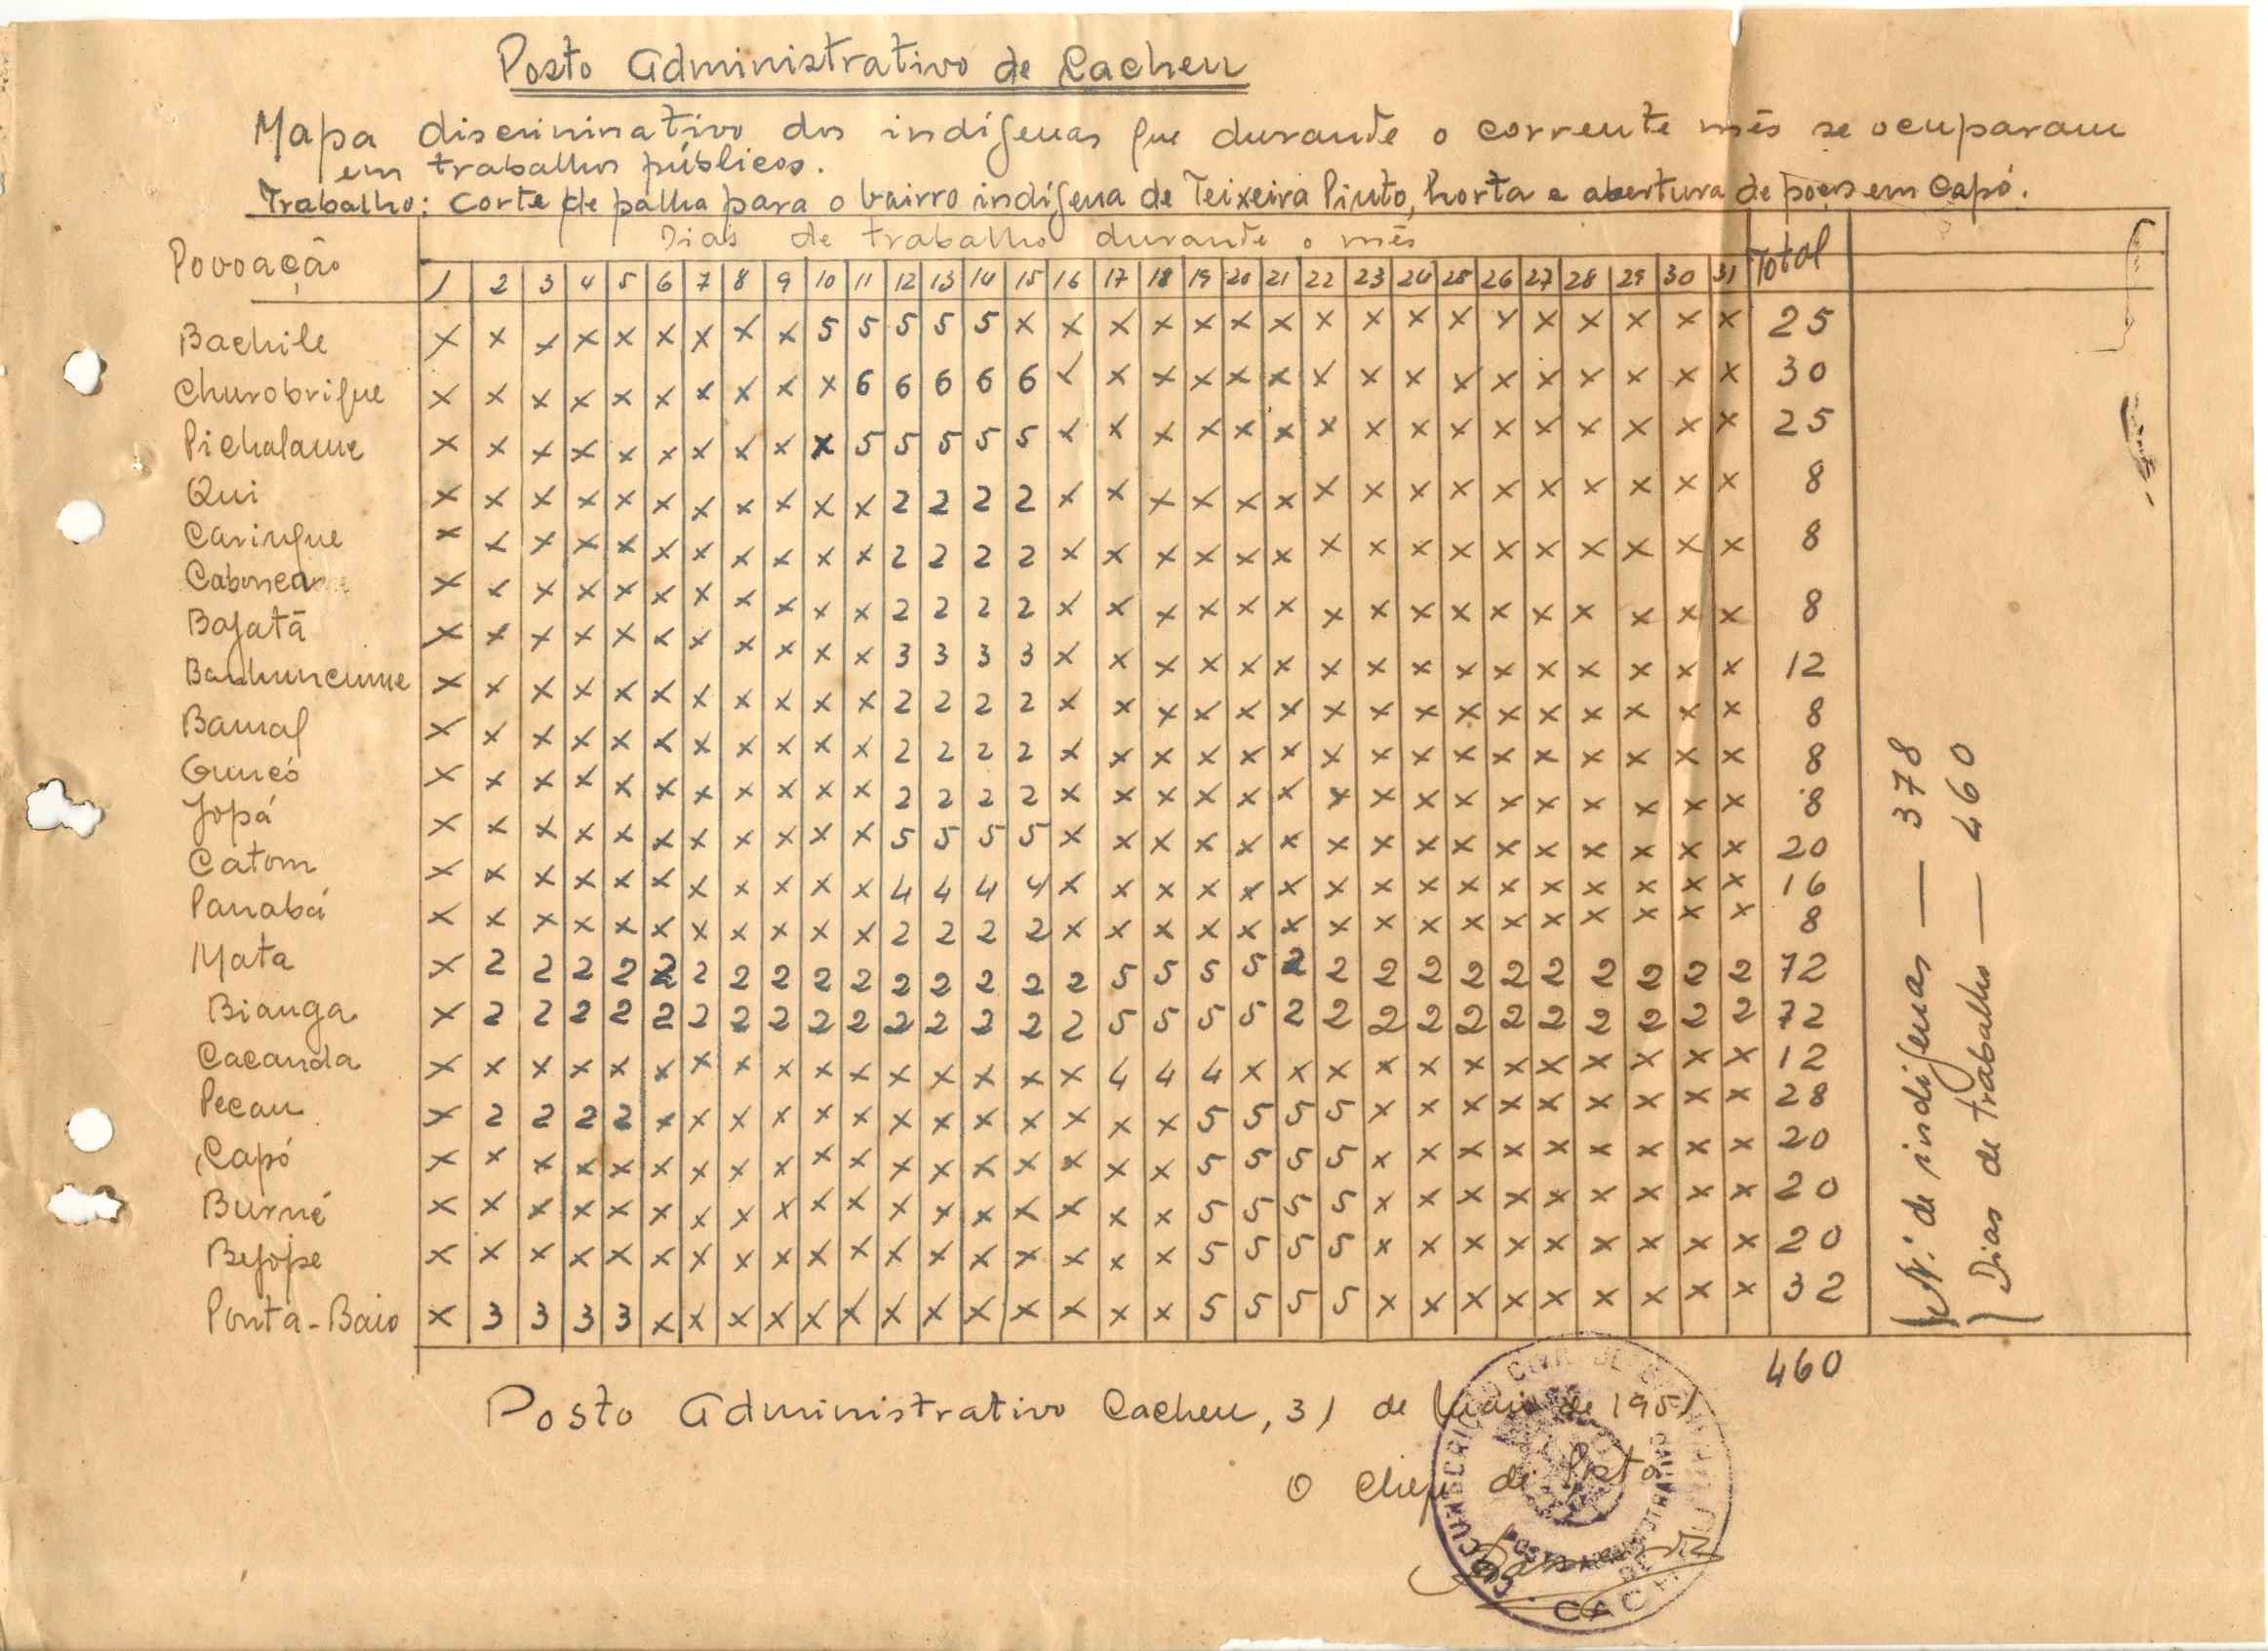 Posto Administrativo de Cacheu
Mapa discriminativo dos indígenas que durante o corrente mês se ocuparam
em trabalhos públicos.
Trabalho: Corte de palha para o bairro indígena de Teixeira Pinto, horta e abertura de poços em Capó.
Povoação Dias de trabalho durante o mês Total
1 2 3 4 5 6 7 8 9 10 11 12 13 14 15 16 17 18 19 20 21 22 23 24 25 26 27 28 29 30 31
Bachile x x x x x x x x x 5 5 5 5 5 x x x x x x x x x x x x x x x x x 25
Churobrique x x x x x x x x x x 6 6 6 6 6 x x x x x x x x x x x x x x x x 30
Pichalame x x x x x x x x x x 5 5 5 5 5 x x x x x x x x x x x x x x x x 25
Qui x x x x x x x x x x x 2 2 2 2 x x x x x x x x x x x x x x x x 8
Caringue x x x x x x x x x x x 2 2 2 2 x x x x x x x x x x x x x x x x 8
x x x x x x x x x x x 2 2 2 2 x x x x x x x x x x x x x x x x 8
Bajatã x x x x x x x x x x x 3 3 3 3 x x x x x x x x x x x x x x x x 12
x x x x x x x x x x x 2 2 2 2 x x x x x x x x x x x x x x x x 8
Bamal x x x x x x x x x x x 2 2 2 2 x x x x x x x x x x x x x x x x 8
Guncó x x x x x x x x x x x 2 2 2 2 x x x x x x x x x x x x x x x x 8
Jopá x x x x x x x x x x x 5 5 5 5 x x x x x x x x x x x x x x x x 20
Catom x x x x x x x x x x x 4 4 4 4 x x x x x x x x x x x x x x x x 16
Panabá x x x x x x x x x x x 2 2 2 2 x x x x x x x x x x x x x x x x 8
Mata x 2 2 2 2 2 2 2 2 2 2 2 2 2 2 2 5 5 5 5 2 2 2 2 2 2 2 2 2 2 2 72
Bianga x 2 2 2 2 2 2 2 2 2 2 2 2 2 2 2 5 5 5 5 2 2 2 2 2 2 2 2 2 2 2 72
Cacanda x x x x x x x x x x x x x x x x 4 4 4 x x x x x x x x x x x x 12
Pecau x 2 2 2 2 x x x x x x x x x x x x x 5 5 5 5 x x x x x x x x x 28
Capó x x x x x x x x x x x x x x x x x x 5 5 5 5 x x x x x x x x x 20
Burné x x x x x x x x x x x x x x x x x x 5 5 5 5 x x x x x x x x x 20
Bejope x x x x x x x x x x x x x x x x x x 5 5 5 5 x x x x x x x x x 20
Ponta-Baio x 3 3 3 3 x x x x x x x x x x x x x 5 5 5 5 x x x x x x x x x 32
460
Nº de indígenas — 378
Dias de trabalho — 460
Posto Administrativo Cacheu, 31 de Maio de 1951
O Chefe de Posto